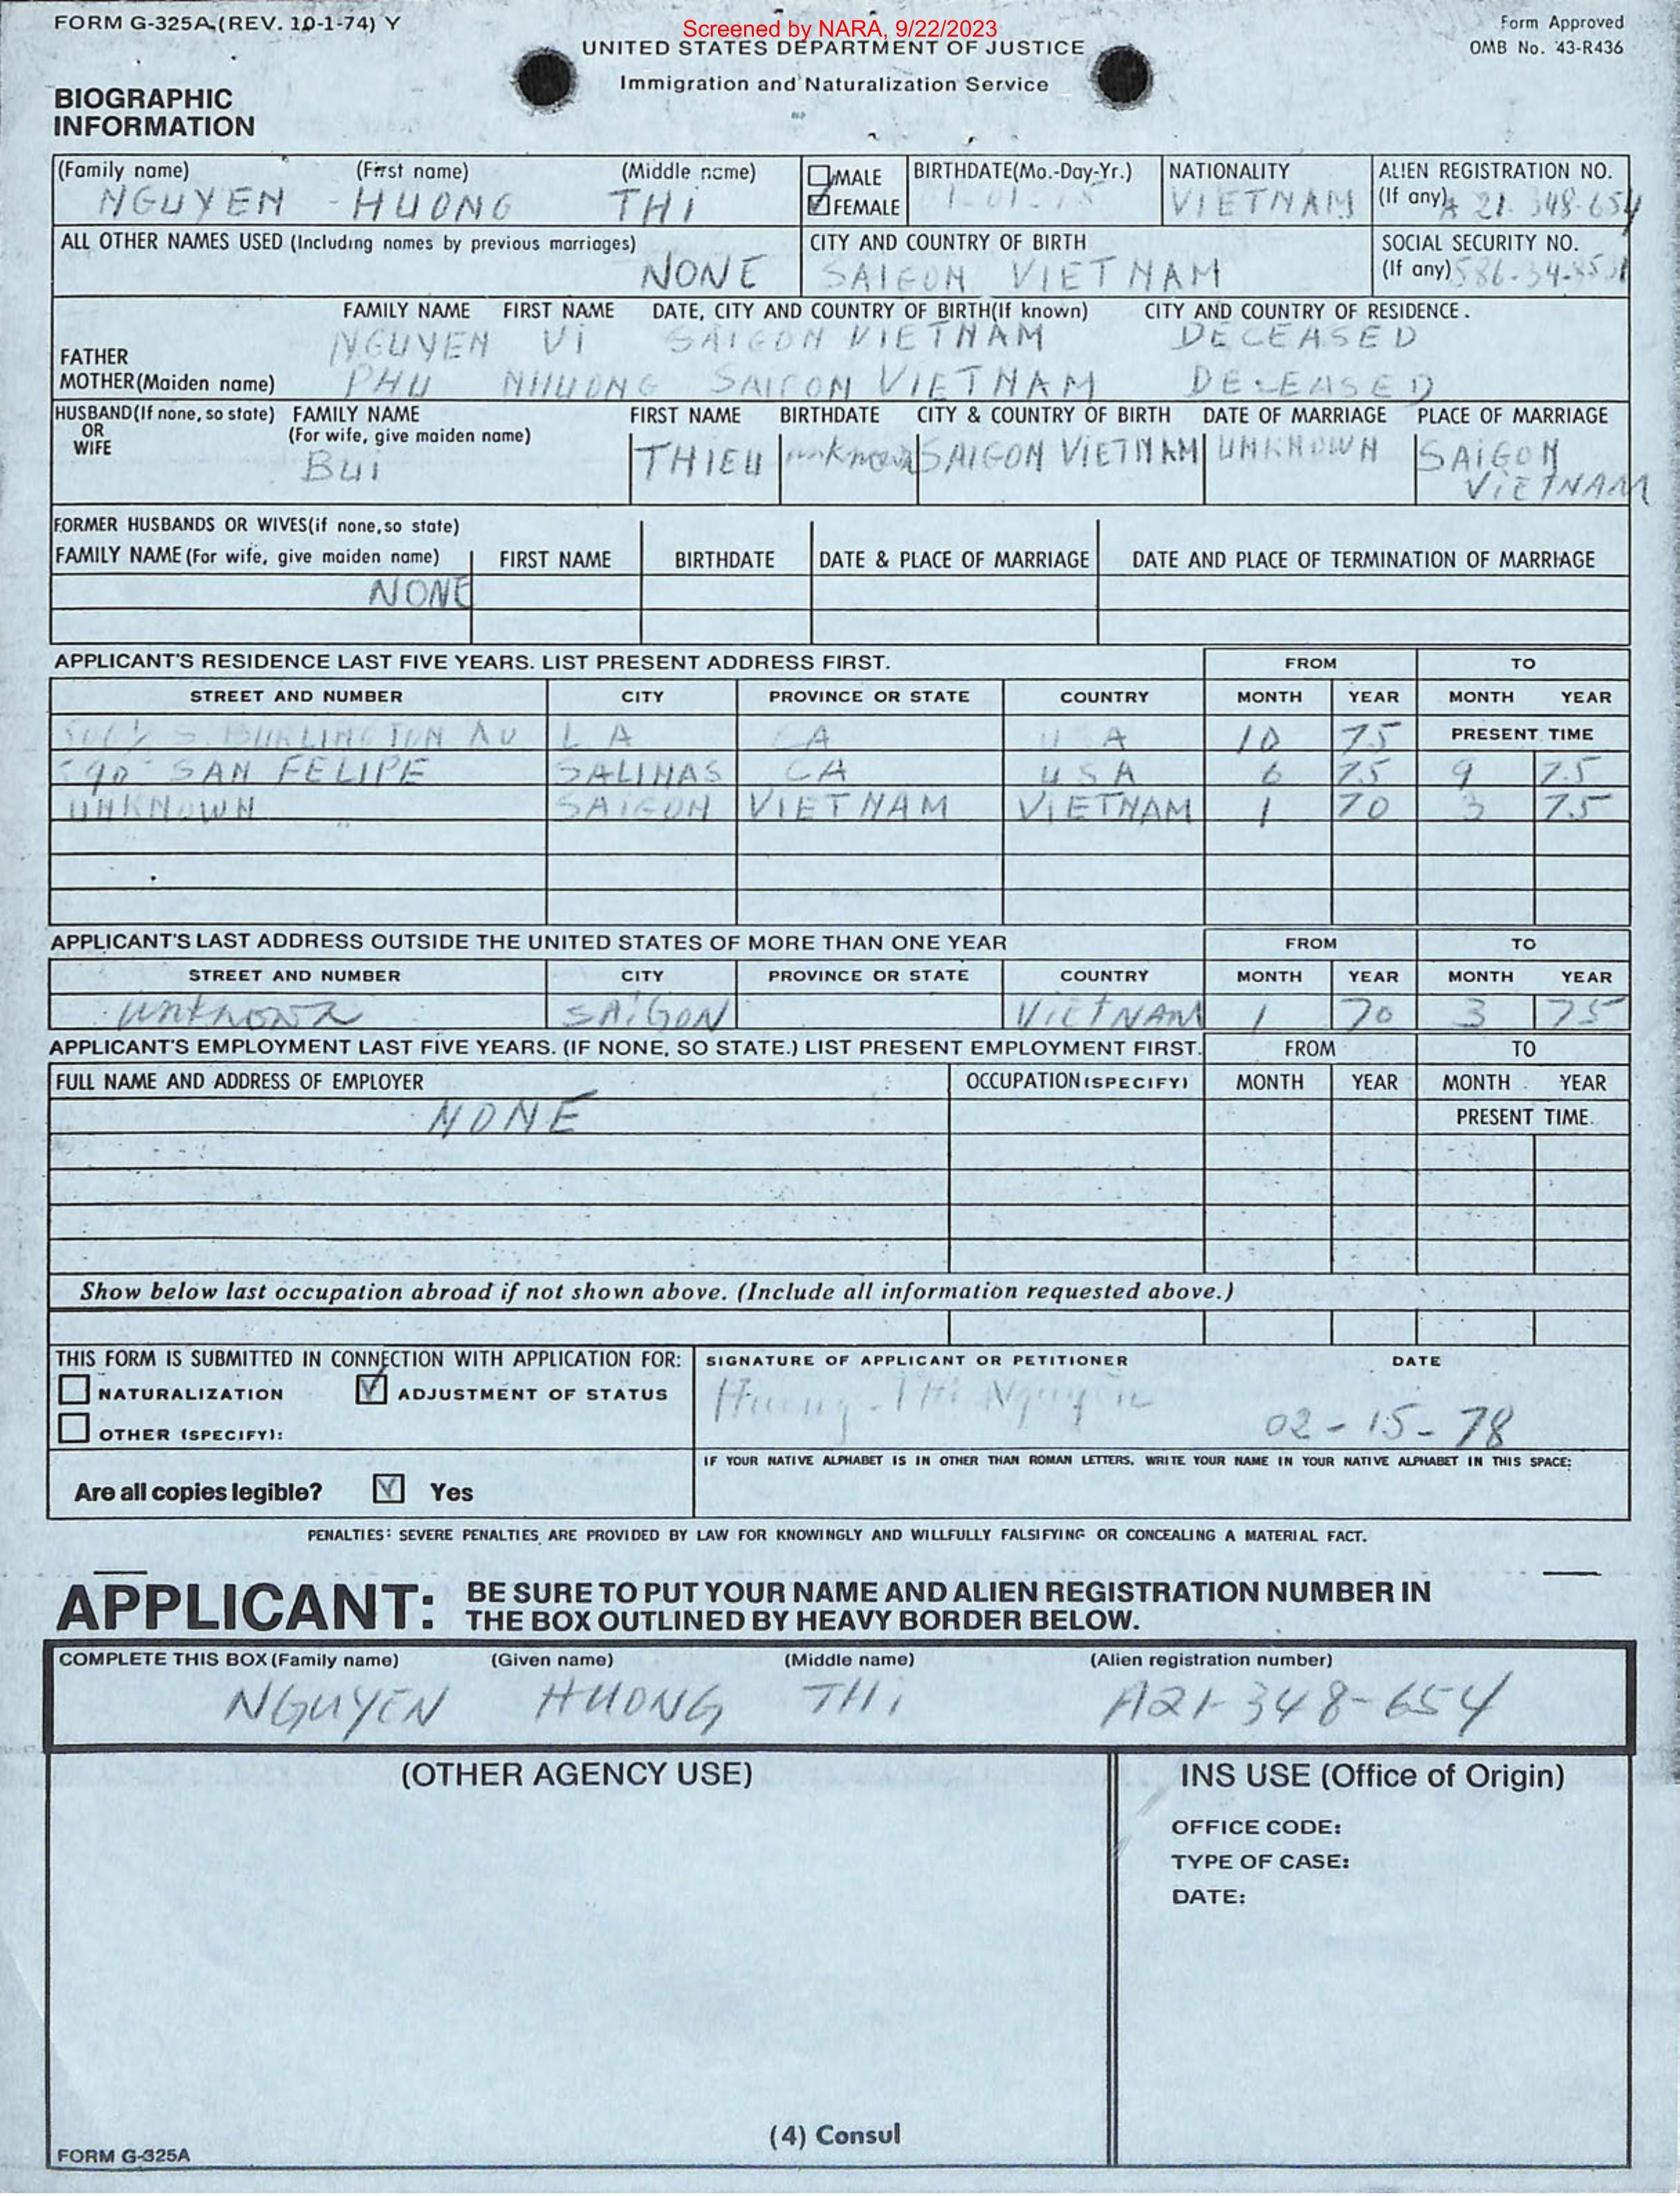 Screened by NARA, 9/22/2023
FORM G-325A (REV. 10-1-74) Y
Form Approved
OMB No. 43-R436
UNITED STATES DEPARTMENT OF JUSTICE
Immigration and Naturalization Service
BIOGRAPHIC
INFORMATION
(Family name) (First name) (Middle name) MALE BIRTHDATE(Mo.-Day-Yr.) NATIONALITY ALIEN REGISTRATION NO.
NGUYEN HUONG THi FEMALE VIETNAM (If any) A 21-348-654
ALL OTHER NAMES USED (Including names by previous marriages) CITY AND COUNTRY OF BIRTH SOCIAL SECURITY NO.
NONE SAIGON VIETNAM (If any)
FAMILY NAME FIRST NAME DATE, CITY AND COUNTRY OF BIRTH(If known) CITY AND COUNTRY OF RESIDENCE.
FATHER NGUYEN Vi SAIGON VIETNAM DECEASED
MOTHER(Maiden name) PHU NHUONG SAIGON VIETNAM DECEASED
HUSBAND(If none, so state) FAMILY NAME FIRST NAME BIRTHDATE CITY & COUNTRY OF BIRTH DATE OF MARRIAGE PLACE OF MARRIAGE
OR (For wife, give maiden name)
WIFE Bui THIEU unknown SAIGON VIETNAM UNKNOWN SAIGON
VIETNAM
FORMER HUSBANDS OR WIVES(if none, so state)
FAMILY NAME (For wife, give maiden name) FIRST NAME BIRTHDATE DATE & PLACE OF MARRIAGE DATE AND PLACE OF TERMINATION OF MARRIAGE
NONE
APPLICANT'S RESIDENCE LAST FIVE YEARS. LIST PRESENT ADDRESS FIRST. FROM TO
STREET AND NUMBER CITY PROVINCE OR STATE COUNTRY MONTH YEAR MONTH YEAR
S BURLINGTON AU LA CA USA 10 75 PRESENT TIME
SAN FELIPE SALINAS CA USA 6 75 9 75
UNKNOWN SAIGON VIETNAM VIETNAM 1 70 3 75
APPLICANT'S LAST ADDRESS OUTSIDE THE UNITED STATES OF MORE THAN ONE YEAR FROM TO
STREET AND NUMBER CITY PROVINCE OR STATE COUNTRY MONTH YEAR MONTH YEAR
unknown SAIGON VIETNAM 1 70 3 75
APPLICANT'S EMPLOYMENT LAST FIVE YEARS. (IF NONE, SO STATE.) LIST PRESENT EMPLOYMENT FIRST. FROM TO
FULL NAME AND ADDRESS OF EMPLOYER OCCUPATION (SPECIFY) MONTH YEAR MONTH YEAR
NONE PRESENT TIME.
Show below last occupation abroad if not shown above. (Include all information requested above.)
THIS FORM IS SUBMITTED IN CONNECTION WITH APPLICATION FOR: SIGNATURE OF APPLICANT OR PETITIONER DATE
NATURALIZATION ADJUSTMENT OF STATUS Huong-Thi Nguyen
OTHER (SPECIFY): 02-15-78
IF YOUR NATIVE ALPHABET IS IN OTHER THAN ROMAN LETTERS, WRITE YOUR NAME IN YOUR NATIVE ALPHABET IN THIS SPACE:
Are all copies legible? Yes
PENALTIES: SEVERE PENALTIES ARE PROVIDED BY LAW FOR KNOWINGLY AND WILLFULLY FALSIFYING OR CONCEALING A MATERIAL FACT.
APPLICANT: BE SURE TO PUT YOUR NAME AND ALIEN REGISTRATION NUMBER IN
THE BOX OUTLINED BY HEAVY BORDER BELOW.
COMPLETE THIS BOX (Family name) (Given name) (Middle name) (Alien registration number)
NGUYEN HUONG THi A21-348-654
(OTHER AGENCY USE) INS USE (Office of Origin)
OFFICE CODE:
TYPE OF CASE:
DATE:
(4) Consul
FORM G-325A